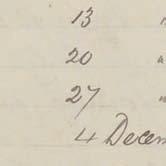 13
20
27
4 Decem